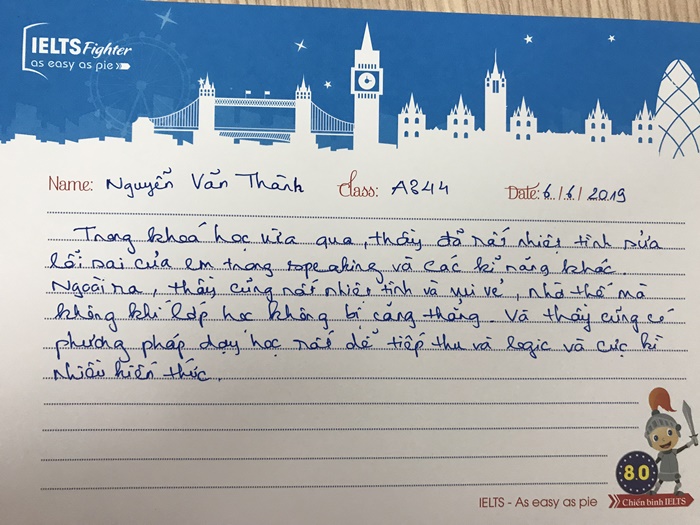 IELTS Fighter
as easy as pie
Name: Nguyễn Văn Thành Class: A844 Date: 6/6/2019
Trong khoá học vừa qua, thầy đã rất nhiệt tình sửa
lỗi sai của em trong speaking và các kĩ năng khác.
Ngoài ra, thầy cũng rất nhiệt tình và vui vẻ, nhờ thế mà
không khí lớp học không bị căng thẳng. Và thầy cũng có
phương pháp dạy học rất dễ tiếp thu và logic và cực kì
nhiều kiến thức.
8.0
Chiến binh IELTS
IELTS - As easy as pie